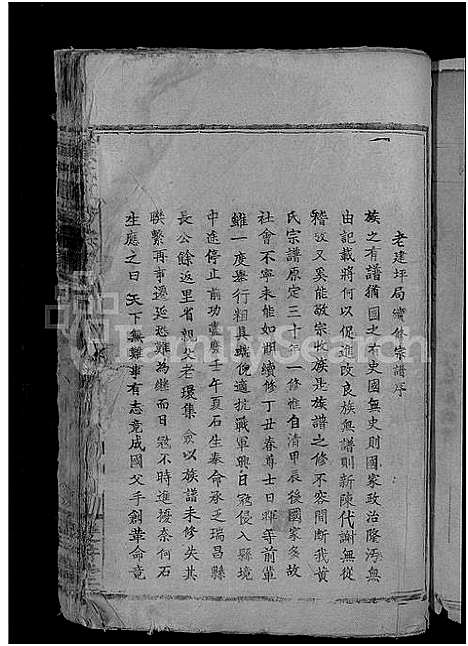 老建坪局濟修宗譜序
族之有譜猶國之有史國無史則國家政治隆汚無
由記載將何以促進改良族無譜則新陳代謝無從
稽攷又奚能敬宗收族是族譜之修不容間斷我黃
氏宗譜原定三十年一修惟自清甲辰後國家多故
社會不寧未能如期續修丁丑春尊士日暉等前輩
雖一度舉行粗具規模適抗戰軍興日寇侵入縣境
中途停止前功盡廢壬午夏石生奉命承乏瑞昌縣
長公餘返里省親父老環集僉以族譜未修失其
聯繫再事遷延恐難為繼而日寇不時進擾奈何石
生應之曰天下無難事有志竟成國父手創革命竟
FamilySearch